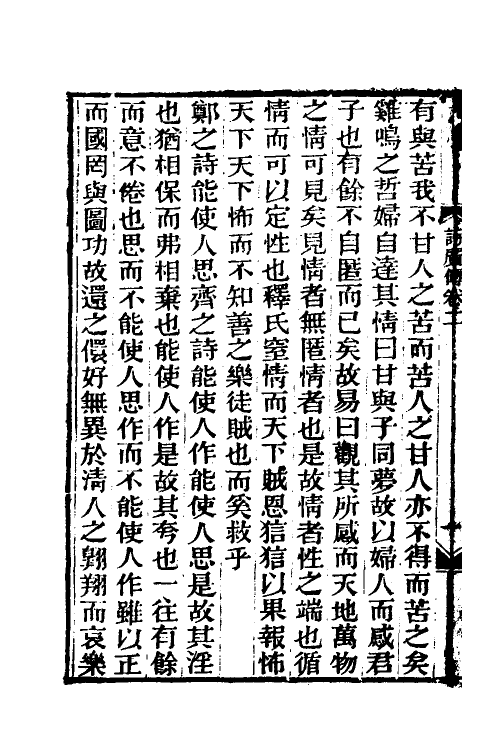 有與苦我不甘人之苦而苦人之甘人亦不得而苦之矣
雞鳴之哲婦自達其情曰甘與子同夢故以婦人而感君
子也有餘不自匿而已矣故易曰觀其所感而天地萬物
之情可見矣見情者無匿情者也是故情者性之端也循
情而可以定性也釋氏窒情而天下賊恩狺狺以果報怖
天下天下怖而不知善之樂徒賊也而奚救乎
鄭之詩能使人思齊之詩能使人作能使人思是故其淫
也猶相保而弗相棄也能使人作是故其夸也一往有餘
而意不倦也思而不能使人思作而不能使人作雖以正
而國罔與圖功故還之儇好無異於淸人之翺翔而哀樂
詩廣傳卷二